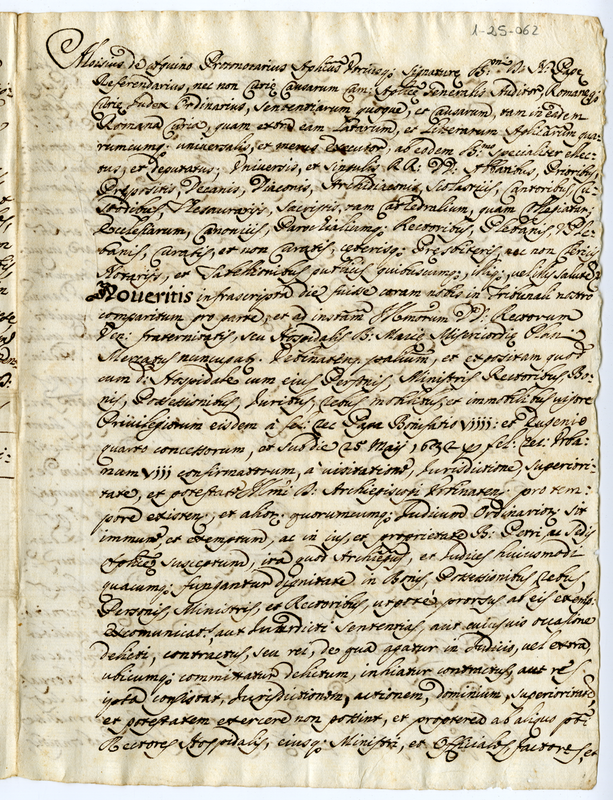 1-25-062
Aloisius de Aquino Protonotarius Aplicus Utriusq; Signature B:mi D: N: Pape
Referendarius, nec non Curie Causarum Cam: Aplice Generalis Auditor, Romaneq;
Curie Iudex Ordinarius, Sententiarum quoque, et Causarum, tam in eadem
Romana Curia, quam extra eam Latarum, et Litterarum Aplicarum qua-
rumcumq; universalis, et merus executor, ab eodem D:mo specialiter elec-
tus, et deputatus; Universis, et singulis RR: DD: Abbatibus, Prioribus,
Prepositis, Decanis, Diaconis, Archidiaconis, Scolasticis, Cantoribus, Cu-
stodibus, Thesaurarijs, Sacristis, tam Catedralium, quam Collegiatar:
Ecclesiarum, Canonicis, Parochialiumq; Rectoribus, Plebanis Viceple-
banis, Curatis, et non Curatis, ceterisq; Presbiteris, nec non Clericis
Notarijs, et Tabellionibus publicis quibuscumq; Salutem
Noveritis infrascripta die fuisse coram nobis in Tribunali nostro
comparitum pro parte, et ad instam Rectorum
Ven: fraternitatis, seu Hospitalis B: Marie Misericordie Plani
Mercatus nuncupat: Urbinaten: et expositum quod
cum d: Hospitale cum eius Personis, Ministris Rectoribus Bo-
nis, Possessionibus, Iuribus, rebus mobilibus, et immobilibus vigore
Privilegiorum eidem à fel: rec: Papa Bonifatio VIIII: et Eugenio
quarto concessorum, et sub die 25 Maij 1632 p fel: rec: Urba-
num VIII confirmatorum, à visitatione, Iurisdictione superiori-
tate, et potestate Ill:mi D: Archiepiscopi Urbinaten: pro tem-
pore existen: et alior: quorumcumq; Iudicum Ordinarior: sit
immune, et exemptum, ac in ius, et proprietate B: Petri, ac Sedis
Aplice susceptum, ita quod Archiepus, et Iudices huiusmodi
quacumq; fungantur dignitate in Bonis, Possessionibus rebus,
Personis, Ministris, et Rectoribus, utpote prorsus ab eis exemp:
Excomunicat: aut Interdicti sententias, aut cuiusvis occasione
delicti, contractus, seu rei, de qua agatur in Iudicio, vel extra
ubicumq; committatur delictum, iniatur contractus, aut res
ipsa consistat, Iurisdictionem, actionem, dominium, superioritate,
et potestatem exercere non possint, et propterea ab aliquo
Rectores Hospitalis, eiusq; Ministri, et Officiales, factores, et